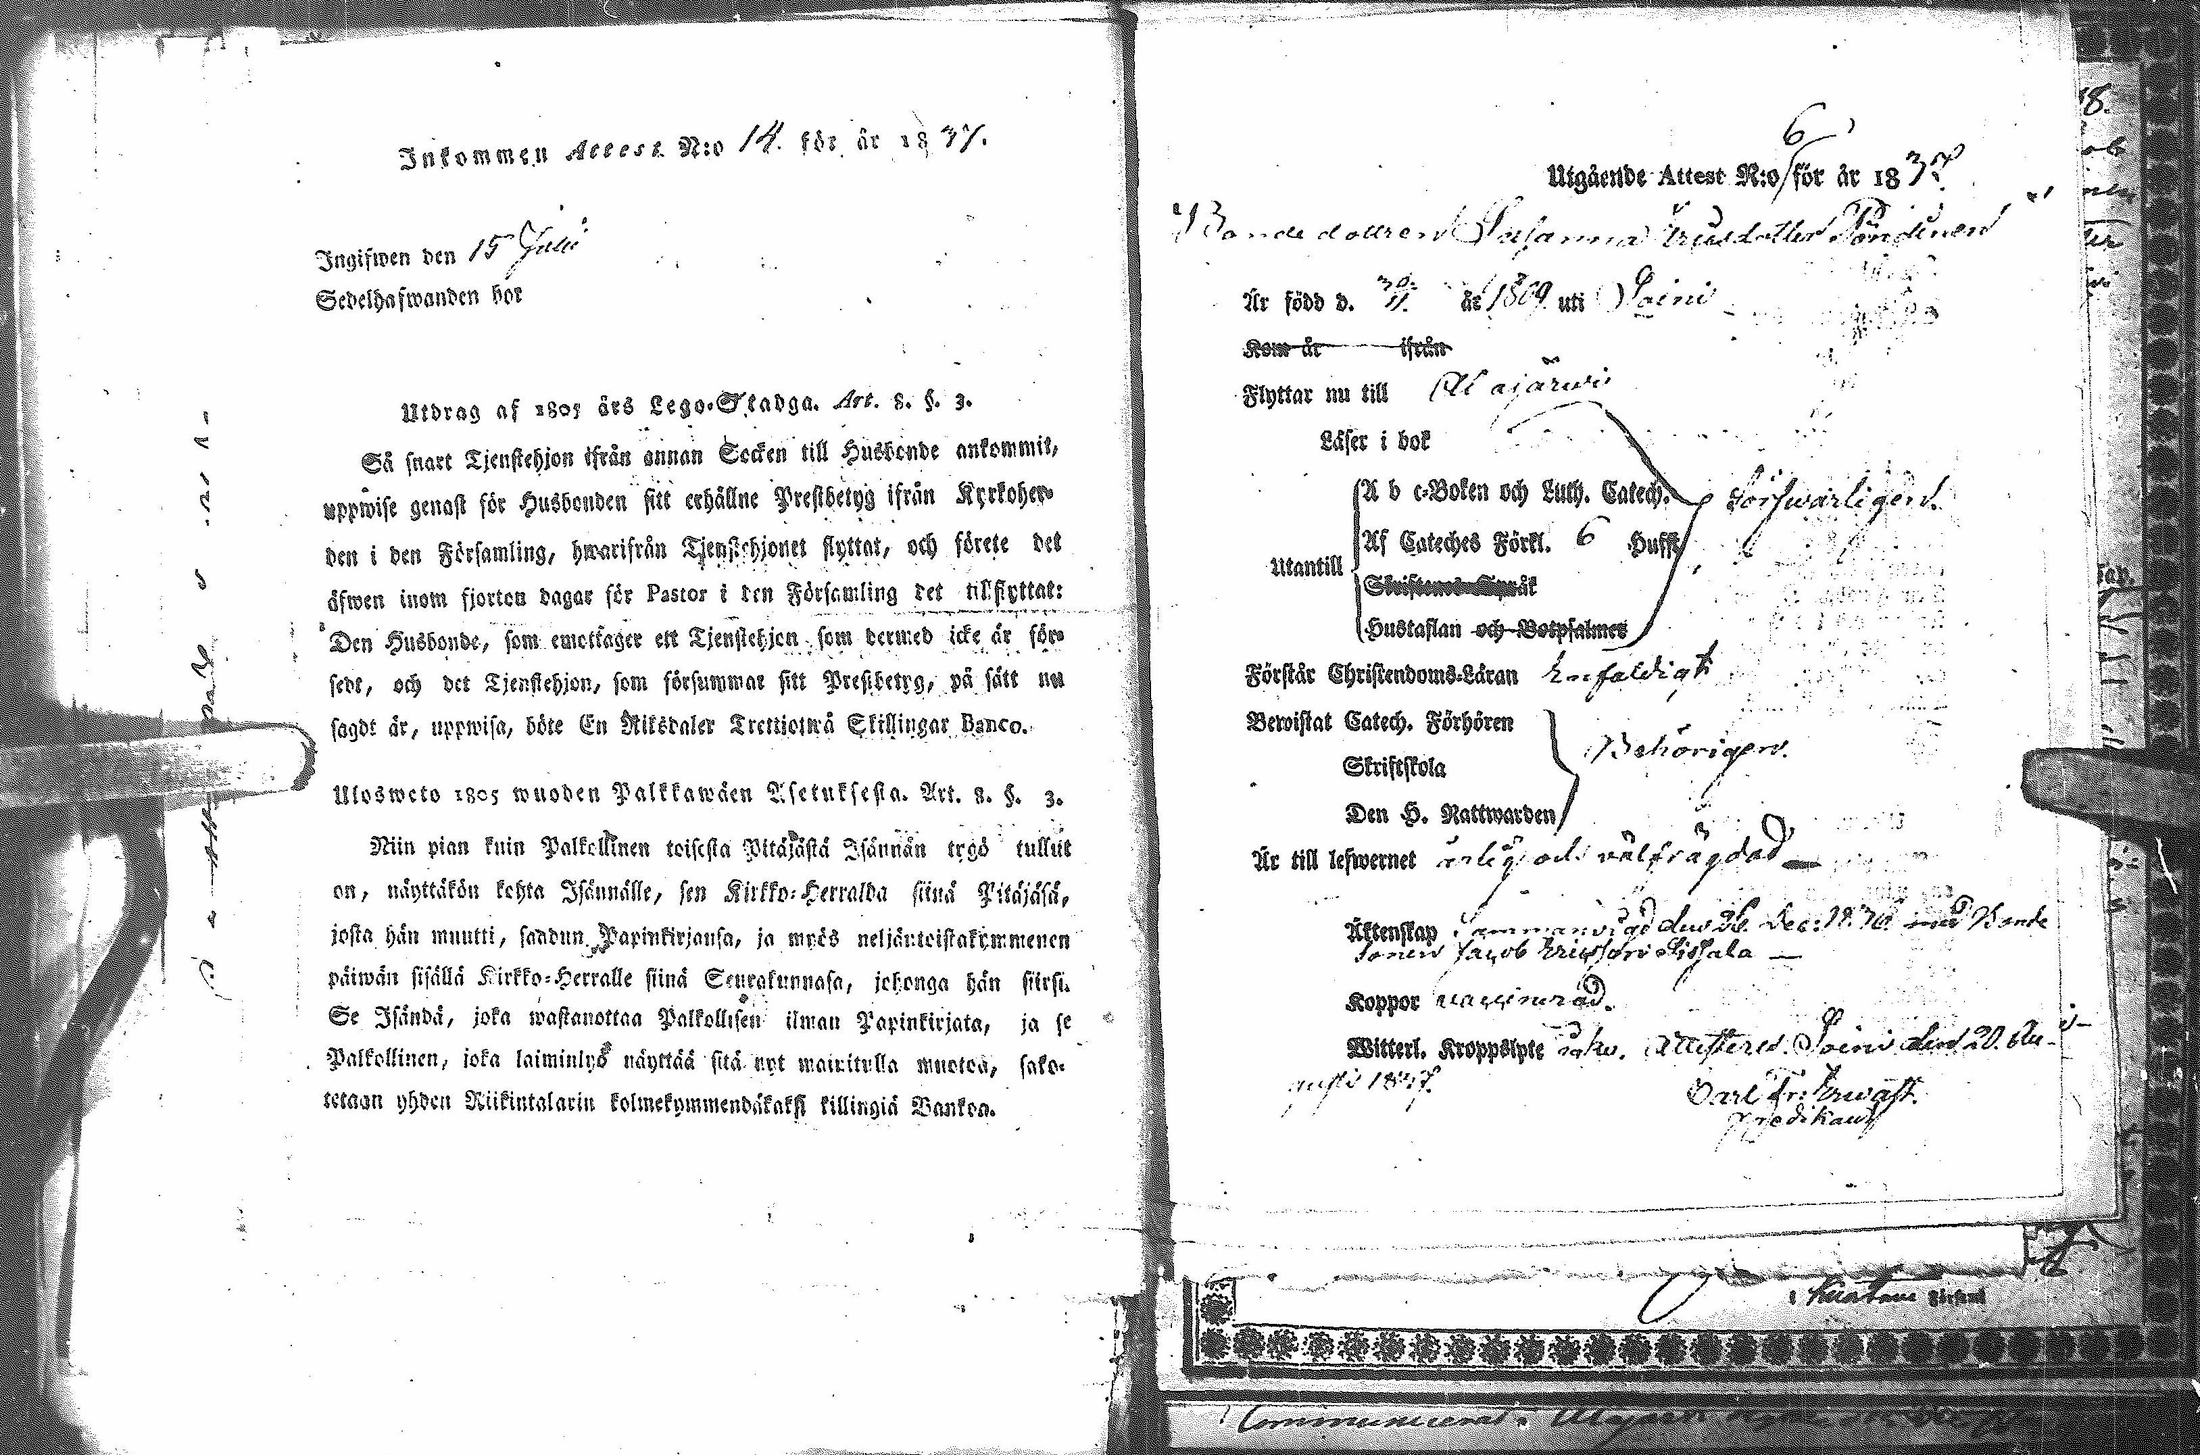 Inkommen Attest N:o 14. för år 1837.
Ingifwen den 15 Julii
Sedelhafwanden bor
Utdrag af 1805 års Lego-Stadga. Art. 8. §. 3.
Så snart Tjenstehjon ifrån annan Socken till Husbonde ankommit,
uppwise genast för Husbonden sitt erhållne Prestbetyg ifrån Kyrkoher-
den i den Församling, hwarifrån Tjenstehjonet flyttat, och förete det
äfwen inom fjorton dagar för Pastor i den Församling det tillflyttat:
Den Husbonde, som emottager ett Tjenstehjon som dermed icke är för-
sedt, och det Tjenstehjon, som försummar sitt Prestbetyg, på sätt nu
sagdt är, uppwisa, böte En Riksdaler Trettiotwå Skillingar Banco.
Ulosweto 1805 wuoden Palkkawäen Asetuksesta. Art. 8. §. 3.
Niin pian kuin Palkollinen toisesta Pitäjästä Isännän tygö tullut
on, näyttäkön kohta Isännälle, sen Kirkko-Herralda siinä Pitäjäsä,
josta hän muutti, saadun Papinkirjansa, ja myös neljäntoistakymmenen
päiwän sisällä Kirkko-Herralle siinä Seurakunnasa, johonga hän siirsi.
Se Isändä, joka wastanottaa Palkollisen ilman Papinkirjata, ja se
Palkollinen, joka laiminlyö näyttää sitä nyt mainitulla muotoa, sako-
tetaan yhden Riikintalarin kolmekymmendäkaksi killingiä Bankoa.
Utgående Attest N:o 6 för år 1837
Bondedottren Susanna Ericsdotter Pöndinen
Är född d. 30/11. år 1809 uti Soini
Kom år ifrån
Flyttar nu till Alajärwi
Läser i bok
A b c-Boken och Luth. Catech. Förswarligen.
Af Cateches Förkl. 6 Hufft.
Utantill
Skriftenes Språk
Hustaflan och Botpsalmer
Förstår Christendoms-Läran Enfaldigt
Bewistat Catech. Förhören
Behörigen.
Skriftskola
Den H. Nattwarden
Är till lefwernet ärlig och välfrägdad
Äktenskap Sammanvigd den 26 Dec: med Bonde
sonen Jacob Ericsson
Koppor vaccinerad.
Witterl. Kroppslyte Attesterar. Soini den 20.
1837.
Carl Fr: Erwast.
Predikant
i Församl
Communicerat